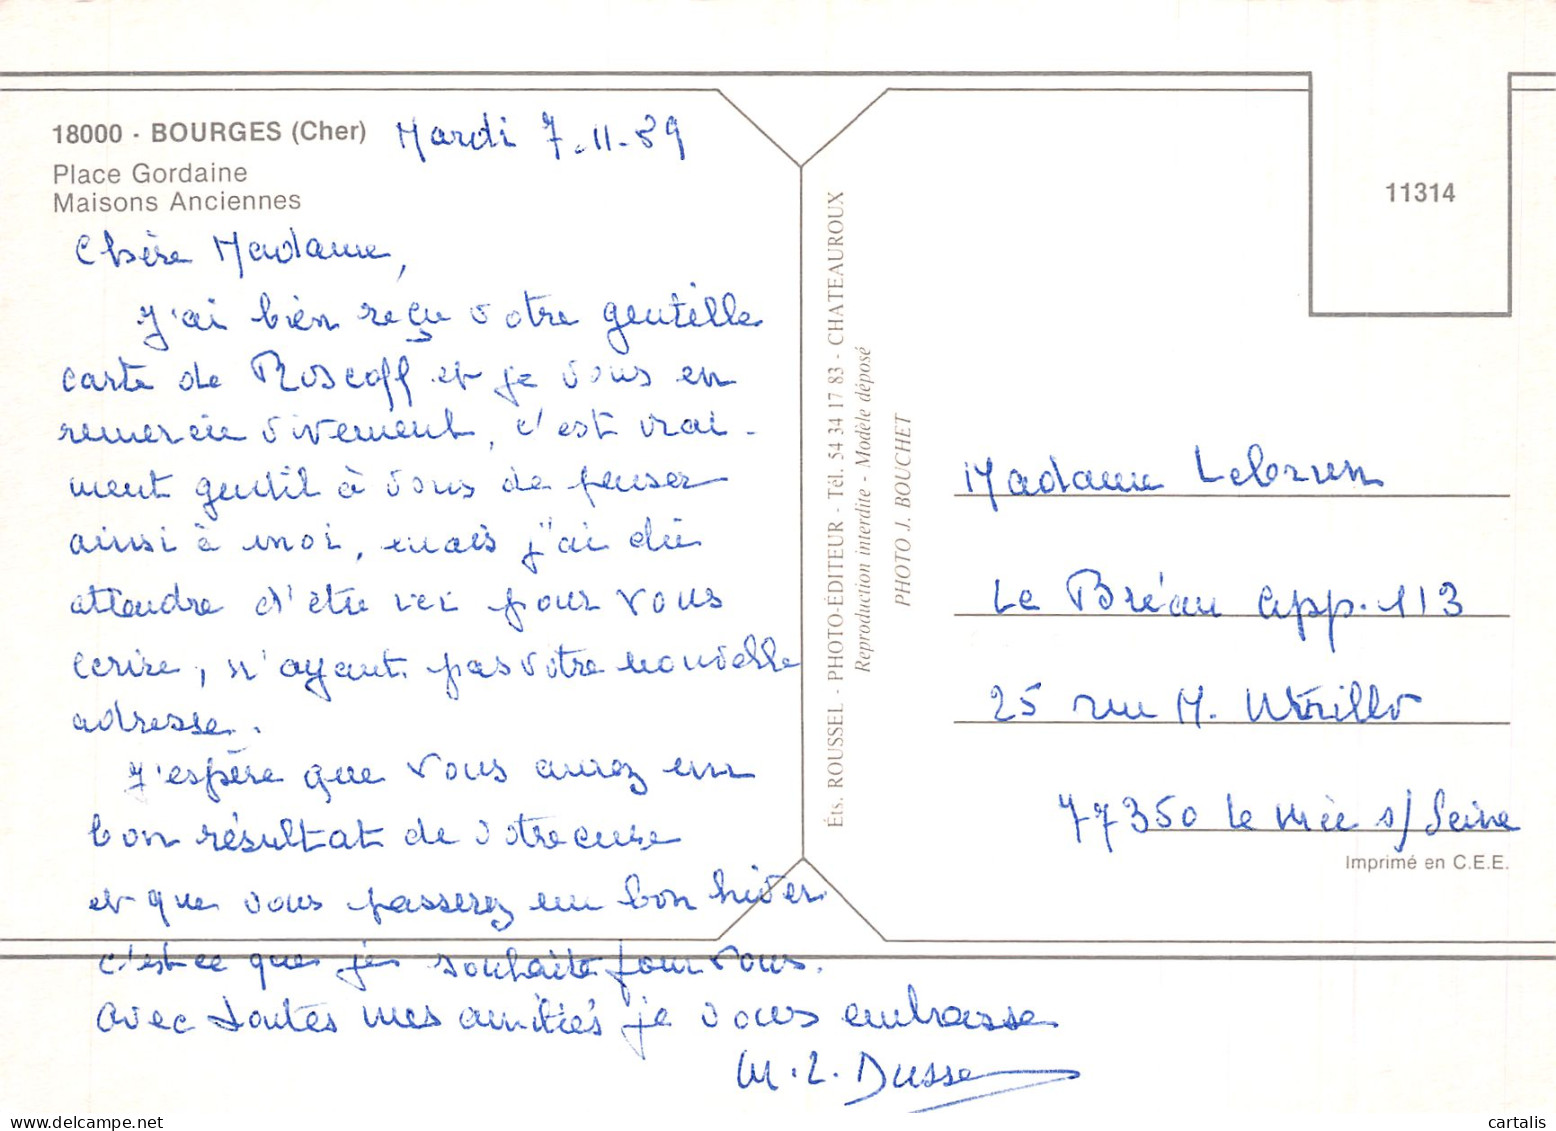 18000 - BOURGES (Cher) Mardi 7.11.89
Place Gordaine
Maisons Anciennes
Chère Madame,
J'ai bien reçu votre gentille
carte de Roscoff et je vous en
remercie vivement, c'est vrai-
ment gentil à vous de penser
ainsi à moi, mais j'ai dû
attendre d'être ici pour vous
écrire, n'ayant pas votre nouvelle
adresse.
J'espère que vous aurez eu un
bon résultat de votre cure
et que vous passerez un bon hiver
c'est ce que je souhaite pour vous.
Avec toutes mes amitiés je vous embrasse
M. L. Dusse
Éts. ROUSSEL - PHOTO-ÉDITEUR - Tél. 54 34 17 83 - CHATEAUROUX
Reproduction interdite - Modèle déposé
PHOTO J. BOUCHET
11314
Madame Lebrun
Le Bréau app. 113
25 rue M. Utrillo
77350 Le Mée s/ Seine
Imprimé en C.E.E.
www.delcampe.net
cartalis